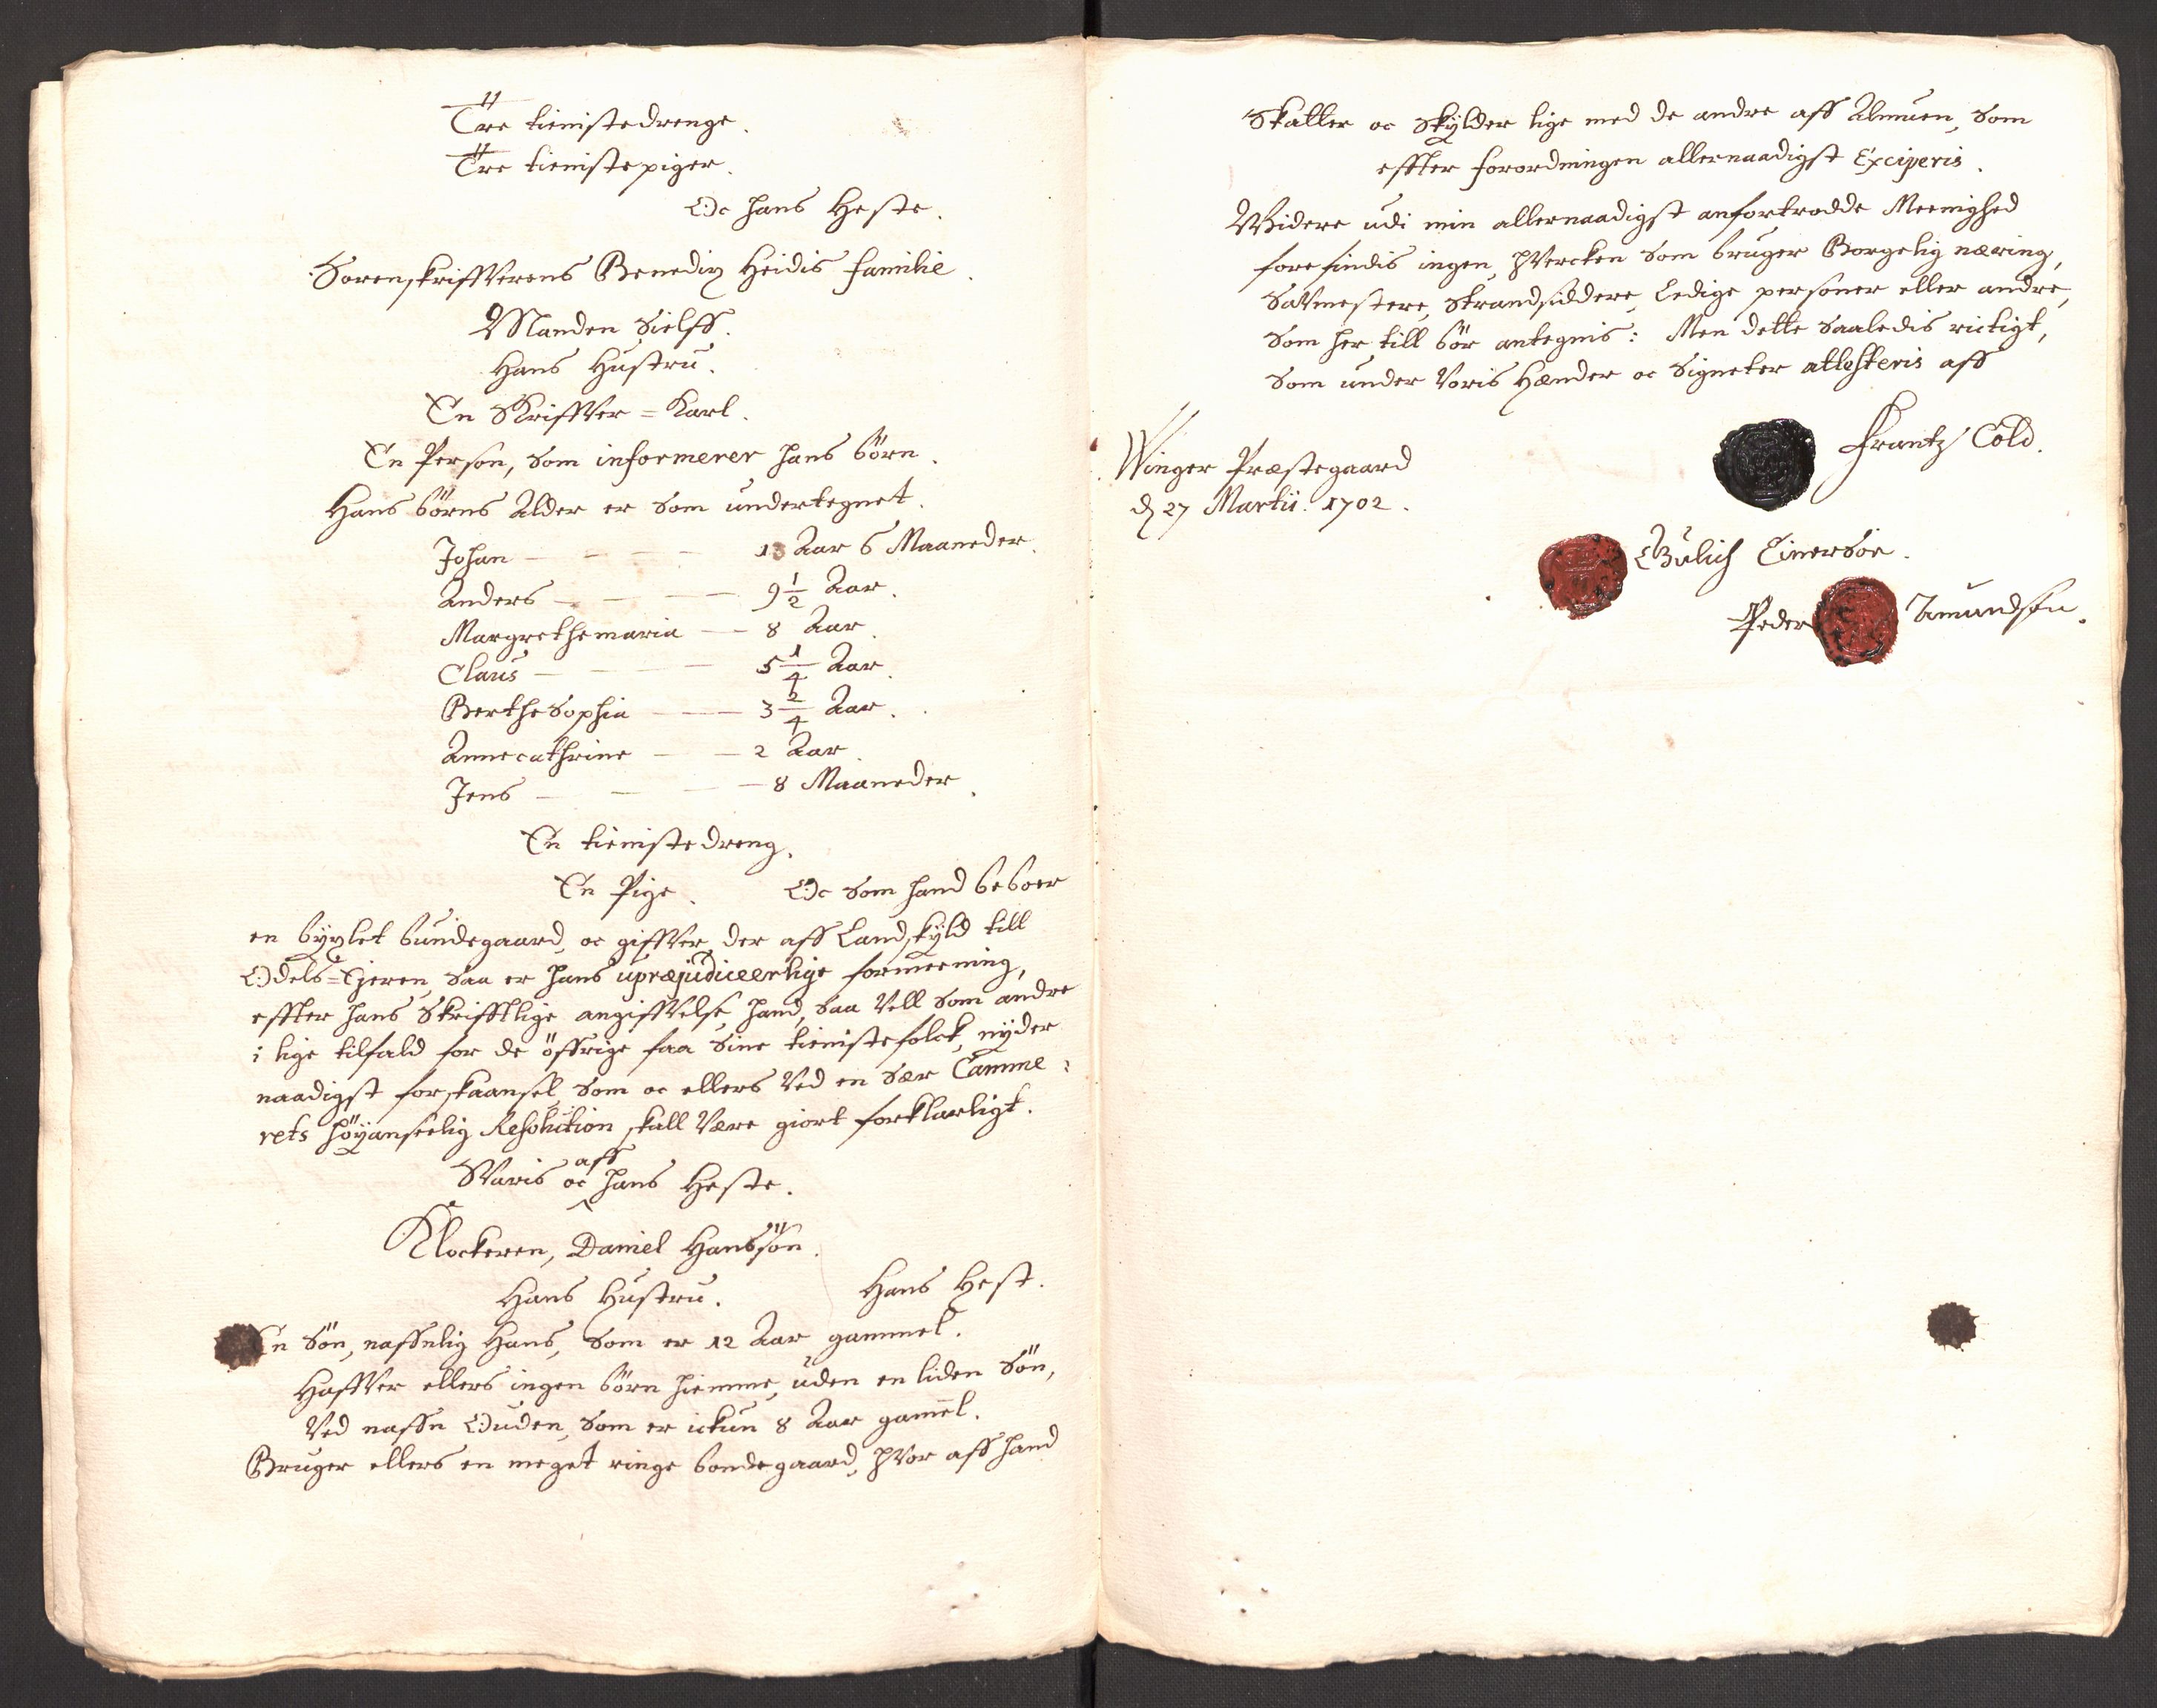 Tre tienistedrenge.
Tre tienistepiger.
Oc hans Heste.
Sorenskrifverens Benedix Heidis familie.
Manden Sielff.
Hans Hustru.
En Skriffver=Karl.
En Person, Som informerer hans börn.
Hans börns Alder er Som undertegnet.
Johan — — — — 13 Aar 6 Maaneder.
Anders — — — — 9 1/2 Aar.
Margrethemaria — — 8 Aar.
Claus — — — — 5 1/4 Aar.
Berthe Sophia — — — 3 2/4 Aar.
Annecathrine — — 2 Aar.
Jens — — — — 8 Maaneder.
En tienistedreng.
En Pige. Oc Som hand beboer
en byxlet bundegaard, oc giffver der aff Landskyld till
Odels=Ejeren, Saa er hans upræjudiceerlige formeening,
effter hans Skrifftlige angiffvelse, hand, Saa Vell Som andre
i lige tilfald for de öffrige faa Sine tienistefolck, nyder
naadigst forskaansel, Som oc ellers Ved en Sær Camme=
rets höyanseelig Resolution skall Være giort forklarligt.
aff
Svaris oc hans Heste.
Klockeren, Daniel Hanssön.
Hans Hustru. Hans Hest.
En Sön, naffnlig Hans, Som er 12 Aar gammel.
Haffver ellers ingen börn hiemme, uden en liden Sön,
Ved naffn Ouden, Som er ickun 8 Aar gamel.
Bruger ellers en meget ringe bondegaard, hvor aff hand
Skatter oc Skylder lige med de andre aff Almuen, Som
effter forordningen allernaadigst Exciperis.
Widere udi min allernaadigst anfortrodde Meenighed
forefindis ingen, hvercken Som bruger Borgelig næring,
Savmestere, Strandsiddere, Ledige personer eller andre,
Som her till bör antegnis: Men dette Saaledis rictigt,
Som under Voris Hænder oc Signeter attesteris aff
Frantz Cold.
Winger Præstegaard
d 27 Martii 1702.
Gulich Einersön.
Peder Amundsen.